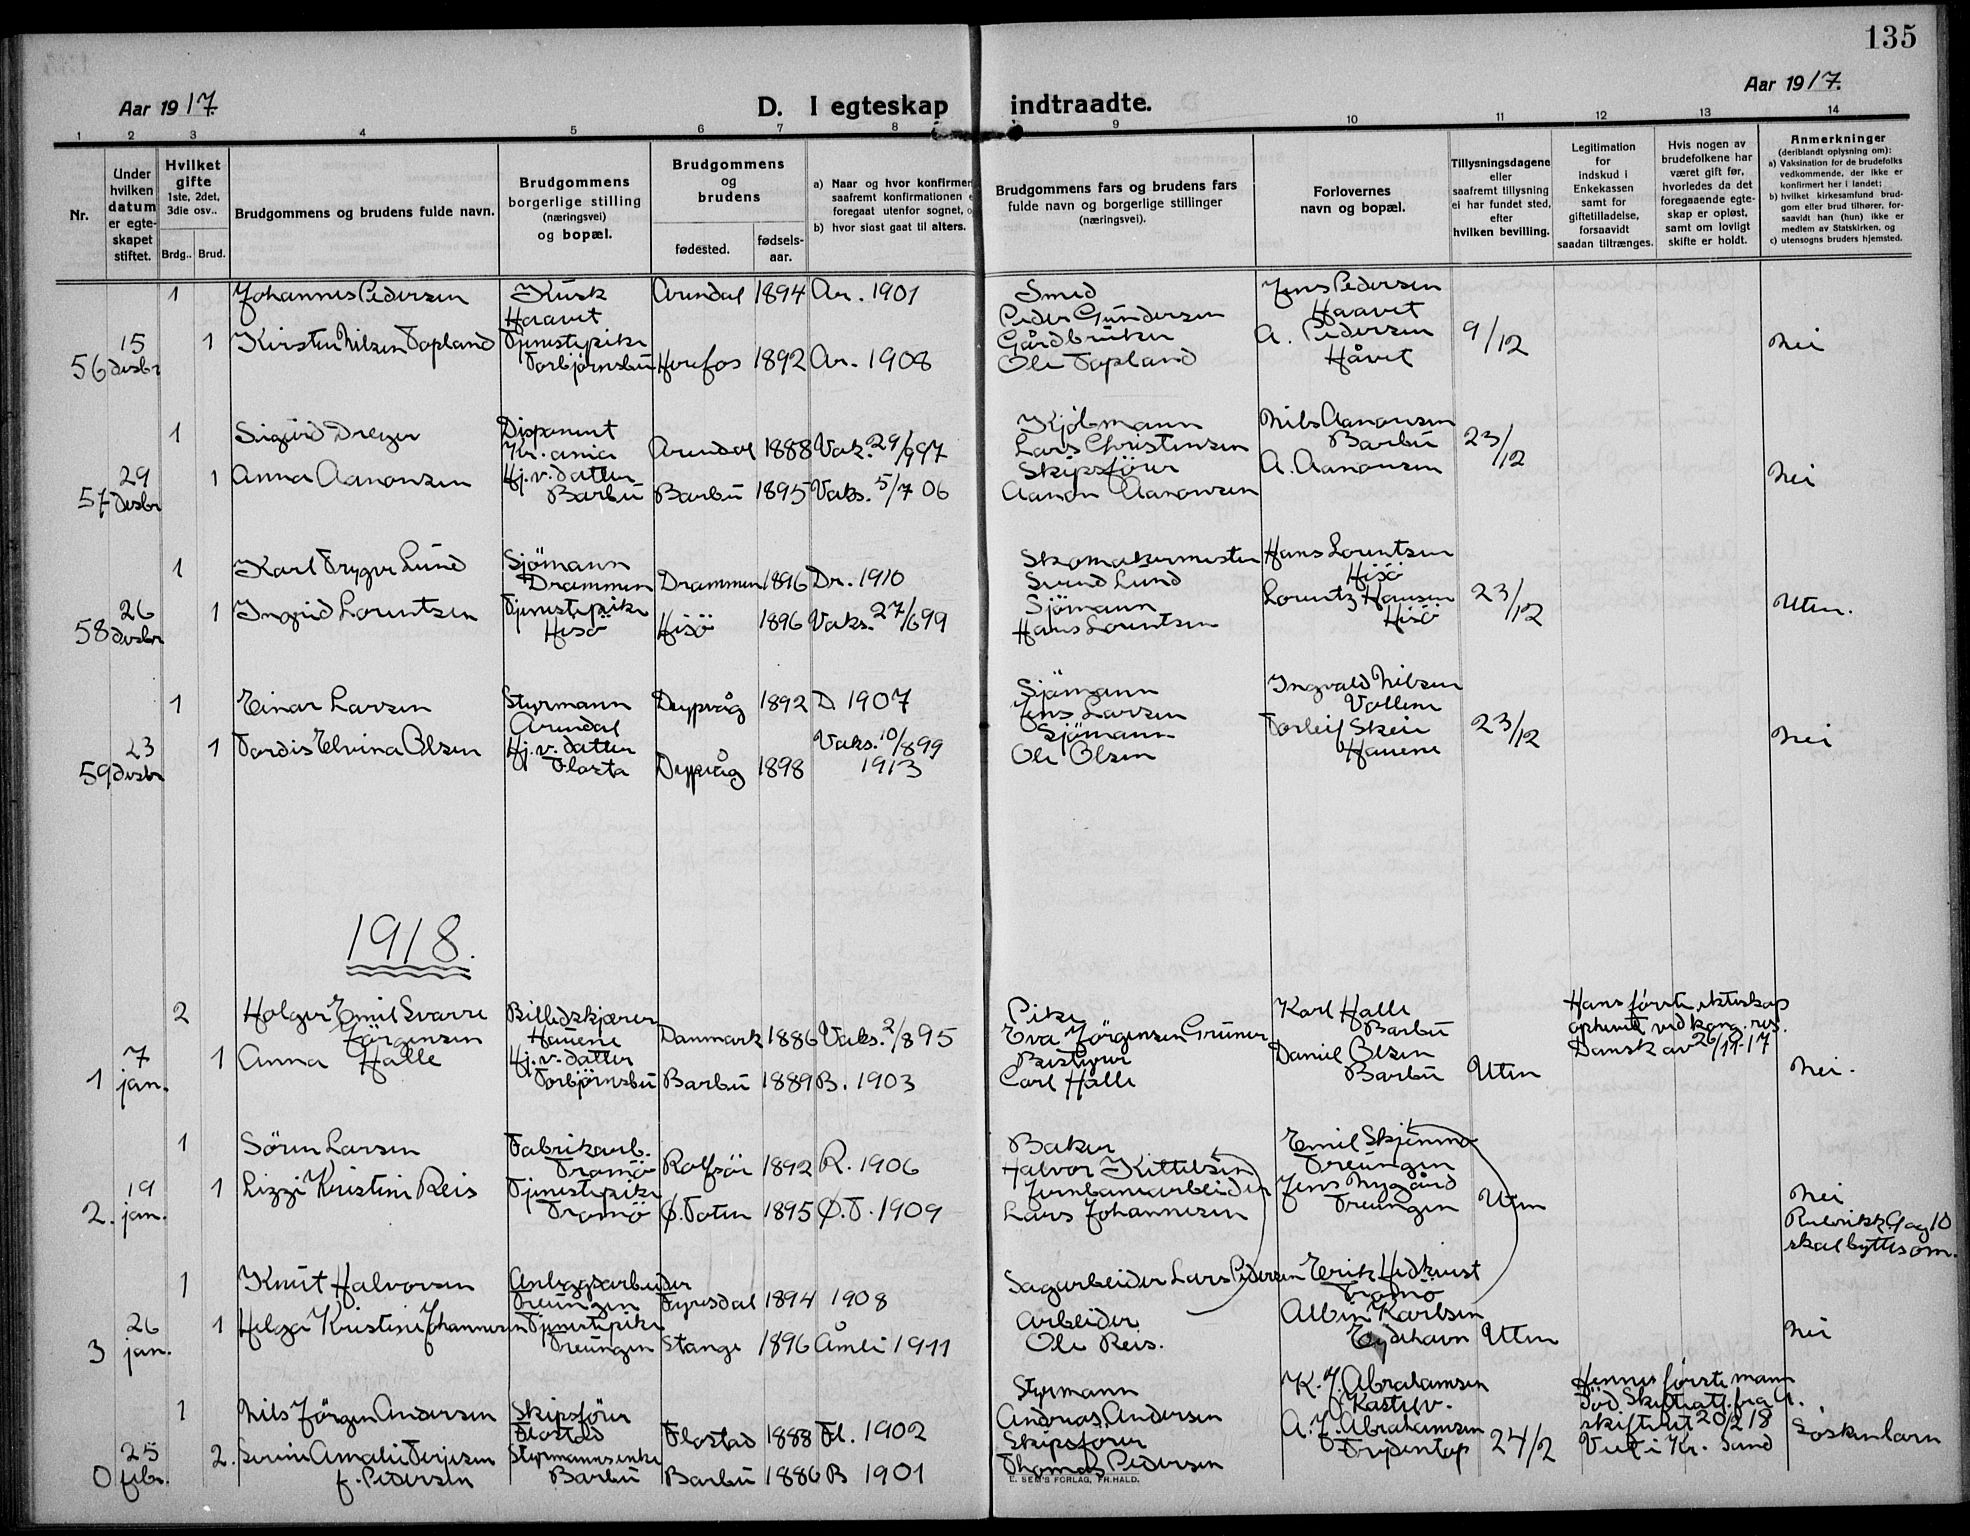 135
Aar 1917.
D. I egteskap indtraadte.
Aar 1917.
1 2 3 4 5 6 7. 8 9 10 11 12 13 14
Nr.
Under hvilken datum er egteskapet stiftet.
Hvilket gifte 1ste, 2det, 3die osv..
Brdg.. Brud.
Brudgommens og brudens fulde navn.
Brudgommens borgerlige stilling (næringsvei) og bopæl.
Brudgommens og brudens
fødested.
fødsels-aar.
a) Naar og hvor konfirmer
saafremt konfirmationen e
foregaat utenfor sognet, o
b) hvor sidst gaat til alters.
Brudgommens fars og brudens fars fulde navn og borgerlige stillinger (næringsvei).
Forlovernes navn og bopæl.
Tillysningsdagene eller saafremt tillysning ei har fundet sted, efter hvilken bevilling.
Legitimation for indskud i Enkekassen samt for giftetilladelse, forsaavidt saadan tiltrænges.
Hvis nogen av brudefolkene har været gift før, hvorledes da det foregaaende egteskap er opløst, samt om lovligt skifte er holdt.
Anmerkninger
(deriblandt oplysning om):
a) Vaksination for de brudefolks vedkommende, der ikke er konfirmert her i landet;
b) hvilket kirkesamfund brudgom eller brud tilhører, forsaavidt han (hun) ikke er medlem av Statskirken, og
c) utensogns bruders hjemsted.
1 Johannes Pedersen Kusk Arendal 1894 Ar. 1901 Smed Jens Pedersen
Haavet Peder Gundersen Haavet
15 1 Kirsten Nilsen Topland Tjenestepike Gårdbruker A. Pedersen 9/12
56 desbr Torbjørnsbu Herefos 1892 Ar. 1908 Ole Topland Håvet nei
1 Sigurd Dreyer Disponent Kjöbmann Nils Aanonsen
Kr.ania Arendal 1888 Vak. 29/9 97 Lars Christensen Barbu 23/12
29 1 Anna Aanonsen Hj.v. datter Skipsförer A. Aanonsen
57 desbr Barbu Barbu 1895 Vaks. 5/7 06 Aanon Aanonsen nei
1 Karl Trygve Lund Sjömann Skomakermester Hans Lorentsen
Drammen Drammen 1896 Dr. 1910 Svend Lund Hisö
26 1 Ingrid Lorentsen Tjenestepike Sjömann Lorentz Hansen 23/12
58 desbr Hisö Hisö 1896 Vaks. 27/6 99 Hans Lorentsen Hisö Uten.
1 Einar Larsen Styrmann Dypvåg 1892 D. 1907 Sjömann Ingvald Nilsen
Arendal Jens Larsen Vollene
23 1 Tordis Elvina Olsen Hj.v. datter Vaks. 10/8 99 Sjömann Torleif Skeie 23/12
59 desbr Flosta Dypvåg 1898 1913 Ole Olsen Hauene nei
1918.
2 Holger Emil Svarre Billedskjærer Pike Karl Halle Hans første ekteskap
Jörgensen Hauene Danmark 1886 Vaks. 2/8 95 Eva Jörgensen Grüner Barbu ophevet ved kong. res.
7 1 Anna Halle Hj.v. datter Bestyrer Daniel Olsen Dansk av 26/11-17
1 jan. Torbjørnsbu Barbu 1889 B. 1903 Carl Halle Barbu Uten nei.
1 Sören Larsen Fabrikarb. Baker Emil Skjenmo
Tromö Rolfsör 1892 R. 1906 Halvor Kittelsen Treungen
19 1 Lizzi Kristine Reis Tjenestepike Jernbanearbeider Jens Nygård
2. jan. Tromö Ø. Toten 1895 Ø.T. 1909 Lars Johannesen Treungen Uten nei
Rubrikk 9 og 10
skal byttes om.
1 Knut Halvorsen Anleggsarbeider Sagarbeider Lars Pedersen Erik Hedkvist
Treungen Fyresdal 1894 1908 Tromö
26 1 Helga Kristine Johannesen Tjenestepike Arbeider Albin Karlsen
3 jan. Treungen Stange 1896 Åmli 1911 Ole Reis. Eydehavn Uten nei
1 Nils Jörgen Andersen Skipsförer Styrmann K. J. Abrahamsen Hennes første mann
Flostad Flostad 1888 Fl. 1902 Andreas Andersen Kastelv. död. Skifteatt. fra A.
25 2. Severine Amalie Terjesen Styrmannsenke Skipsförer A. J. Abrahamsen skifteret 20/2 18
0 febr. f. Pedersen Barbu Barbu 1886 B 1901 Thomas Pedersen Frydentop 24/2 Viet i Kr. Sand Söskenbarn
E. SEM'S FORLAG, FR.HALD.